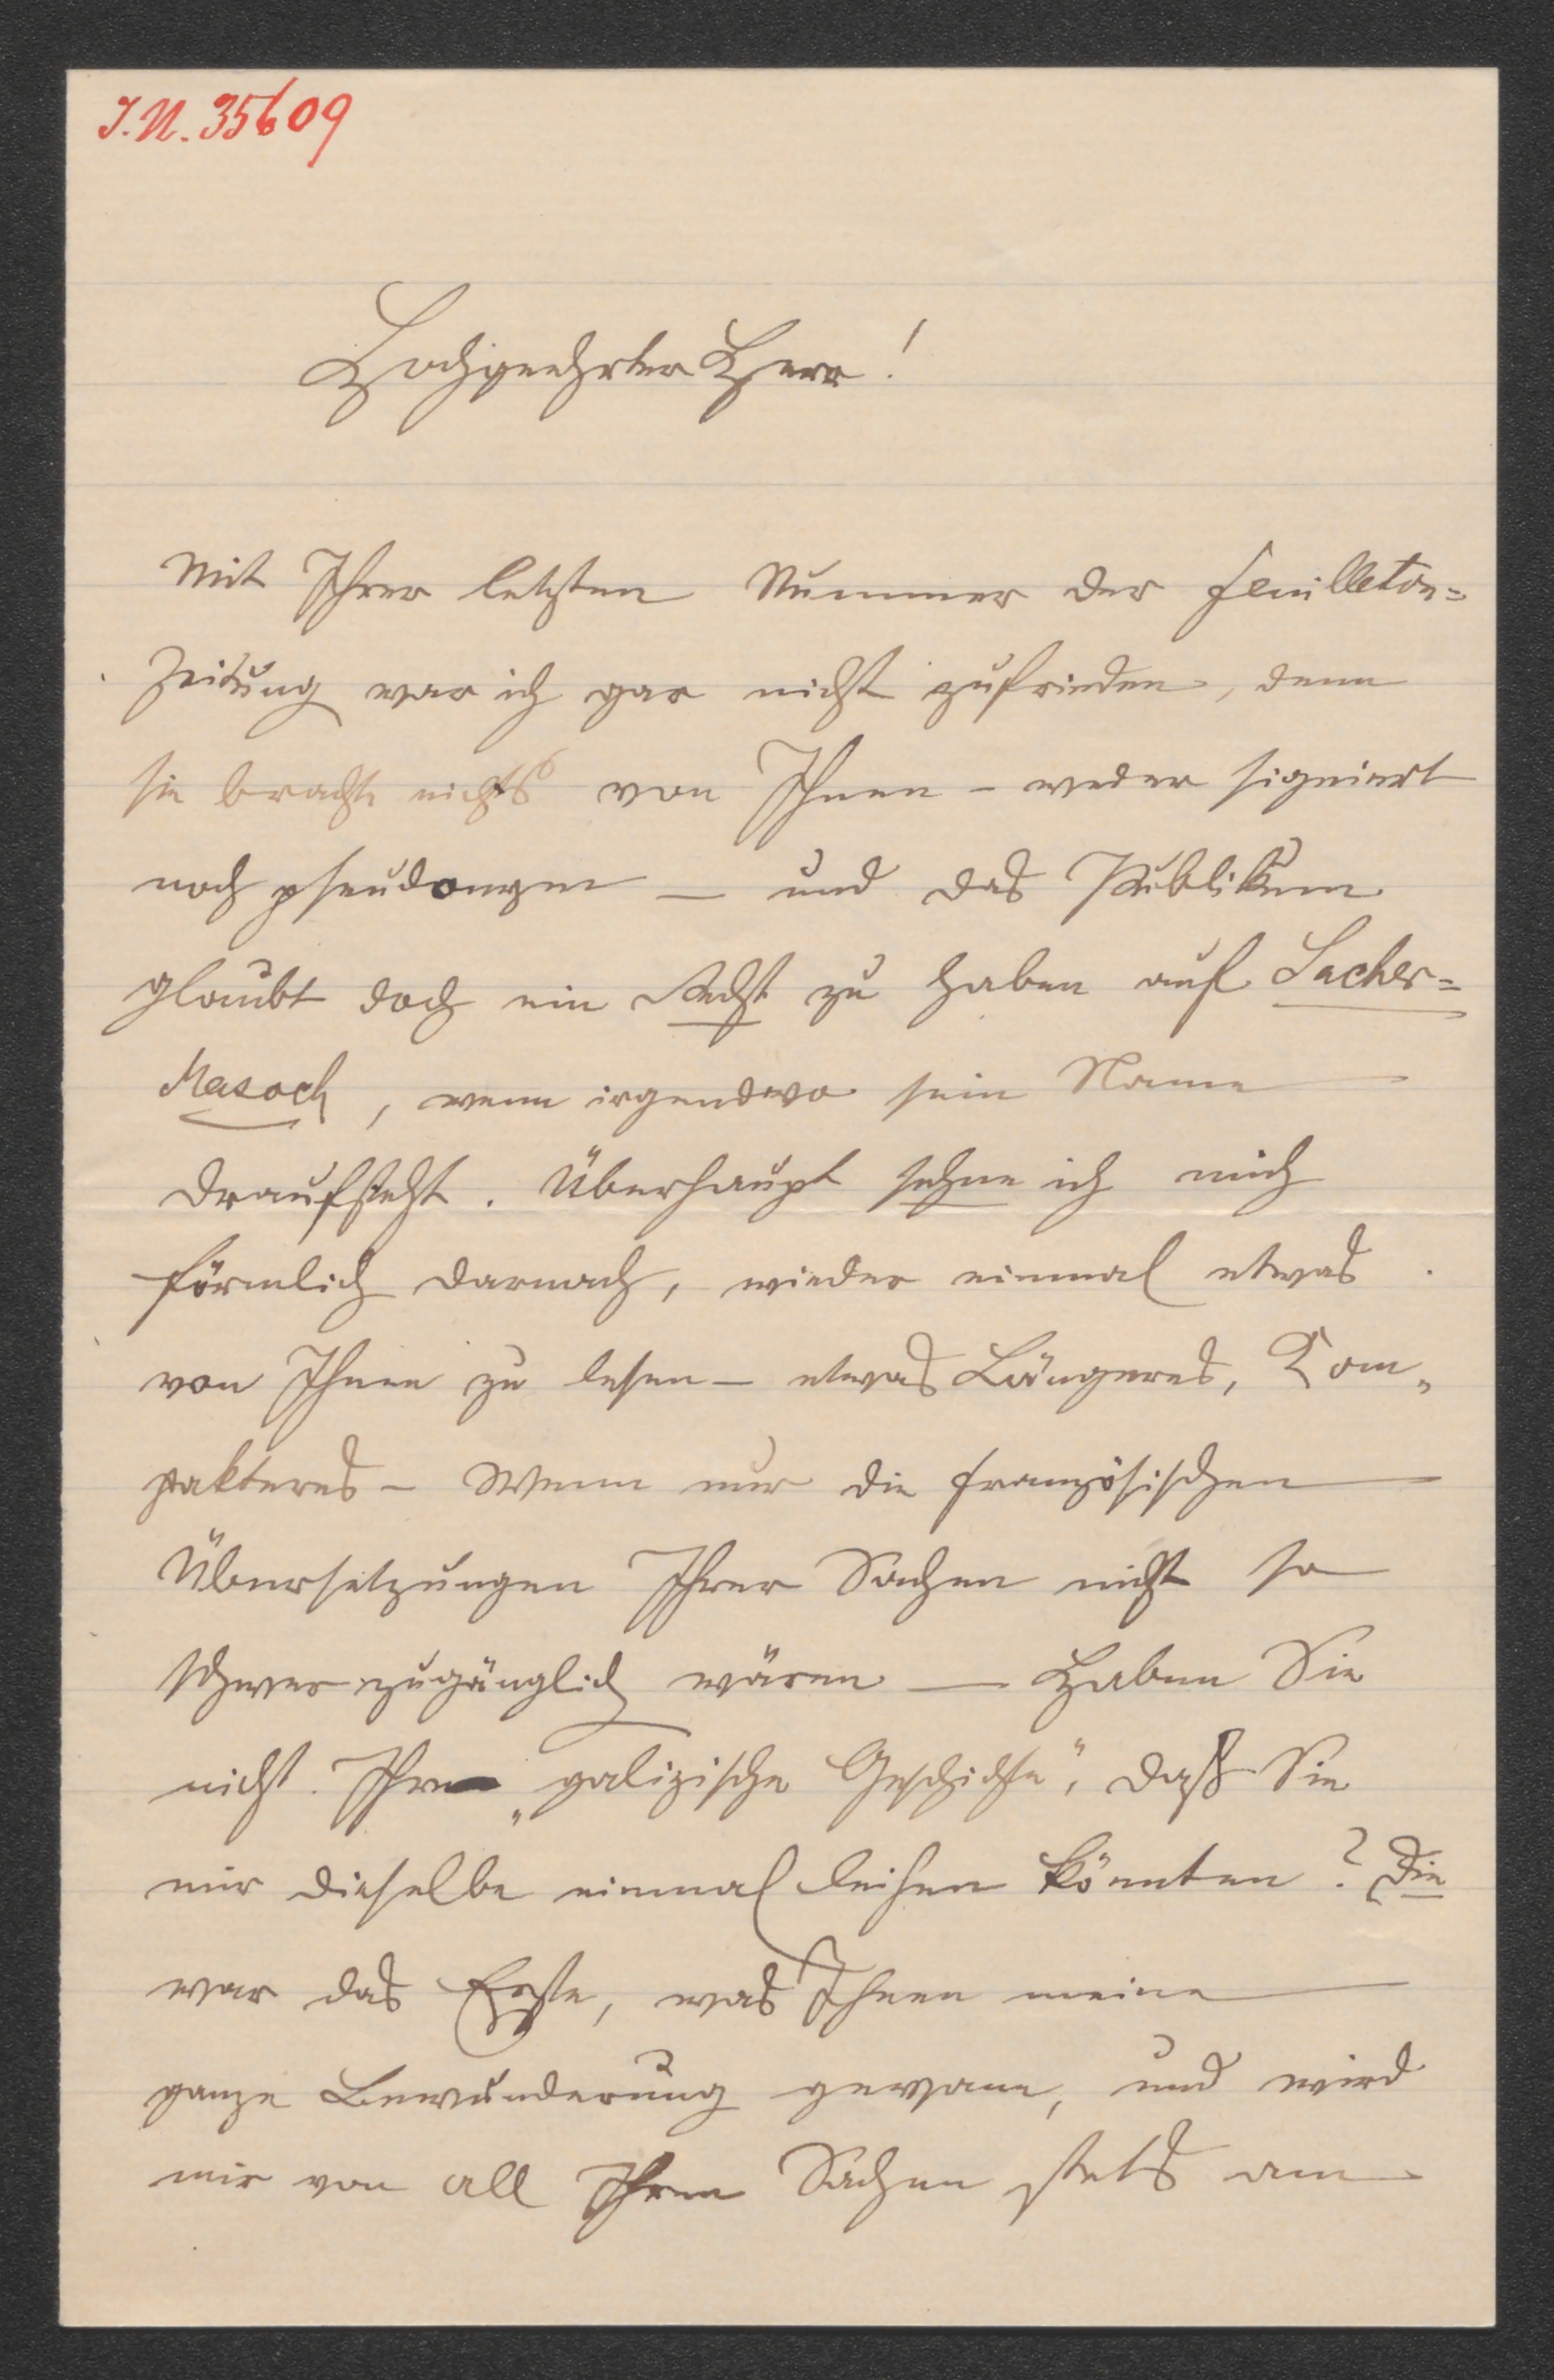 I.N. 35609
Hochgeehrter Herr!
Mit Ihrer letzten Nummer der Feuilleton=
Zeitung war ich gar nicht zufrieden, denn
sie brachte nichts von Ihnen – weder signiert
noch pseudonym – und das Publikum
glaubt doch ein Recht zu haben auf Sacher=
Masoch, wenn irgendwo sein Name
draufsteht. Überhaupt sehne ich mich
förmlich darnach, wieder einmal etwas
von Ihnen zu lesen – etwas Längeres, Kom„
pakteres – Wenn nur die französischen
Übersetzungen Ihrer Sachen nicht so
schwer zugänglich wären – Haben Sie
nicht Ihre „galizische Geschichte“, daß Sie
mir dieselbe einmal leihen könnten? Die
war das Erste, was Ihnen meine
ganze Bewunderung gewann, und wird
mir von all Ihren Sachen stets am